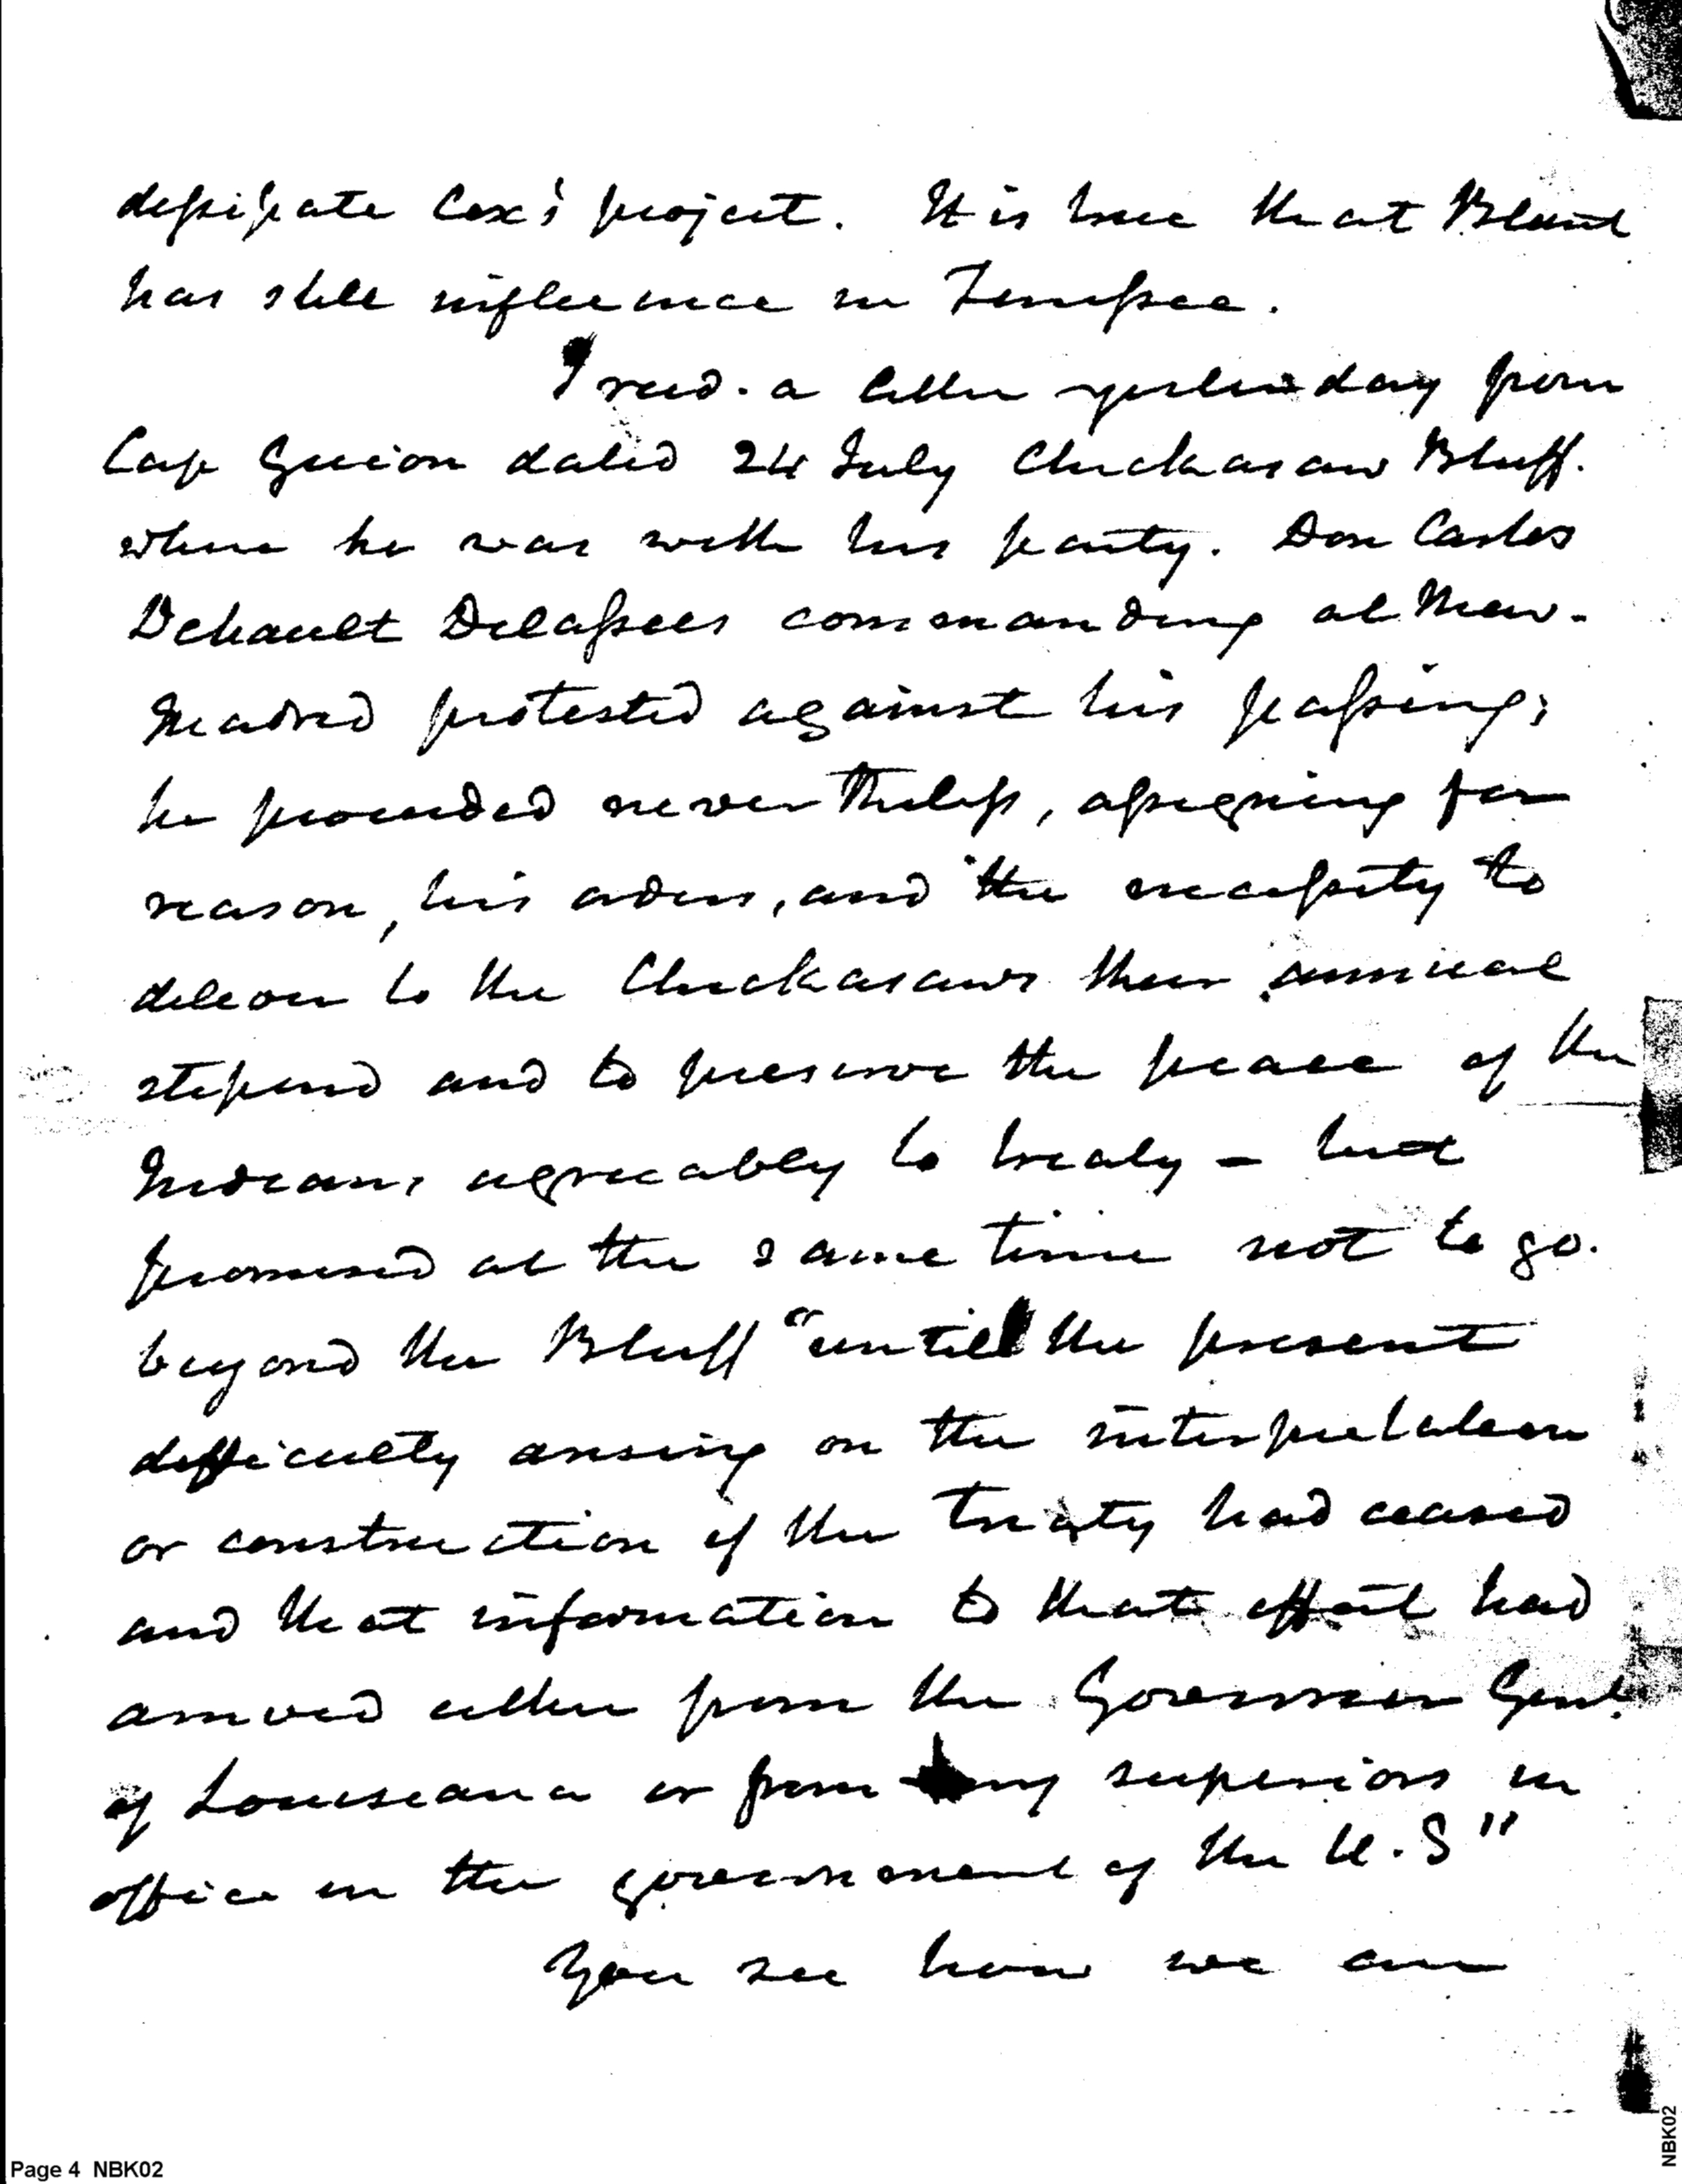 dissipate Cox's project. It is true that Blount
has still influence in Tennessee.
I recd. a letter yesterday from
Cap Guion dated 24 July Chickasaw Bluff.
where he was with his party. Don Carlos
Dehault Delassus commanding at New-
Madrid protested against his passing;
he proceeded nevertheless, assigning for
reason, his orders, and the necessity to
deliver to the Chickasaws their annual
stipend and to preserve the peace of the
Indians agreeably to treaty - but
promised at the same time not to go.
beyond the Bluff "untill the present
difficulty arising on the interpretation
or construction of the treaty had ceased
and that information to that effect had
arrived either from the Governor Genl.
of Louisiana or from my superiors in
office in the government of the U.S"
You see how we are
Page 4 NBK02
NBK02